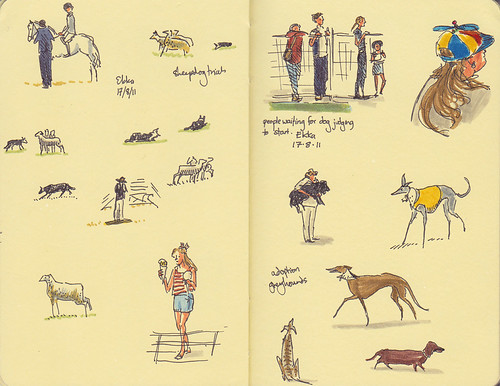 Ekka
17/8/11
Sheepdog trials
people waiting for dog judging
to start. Ekka
17·8·11
adoption
greyhounds